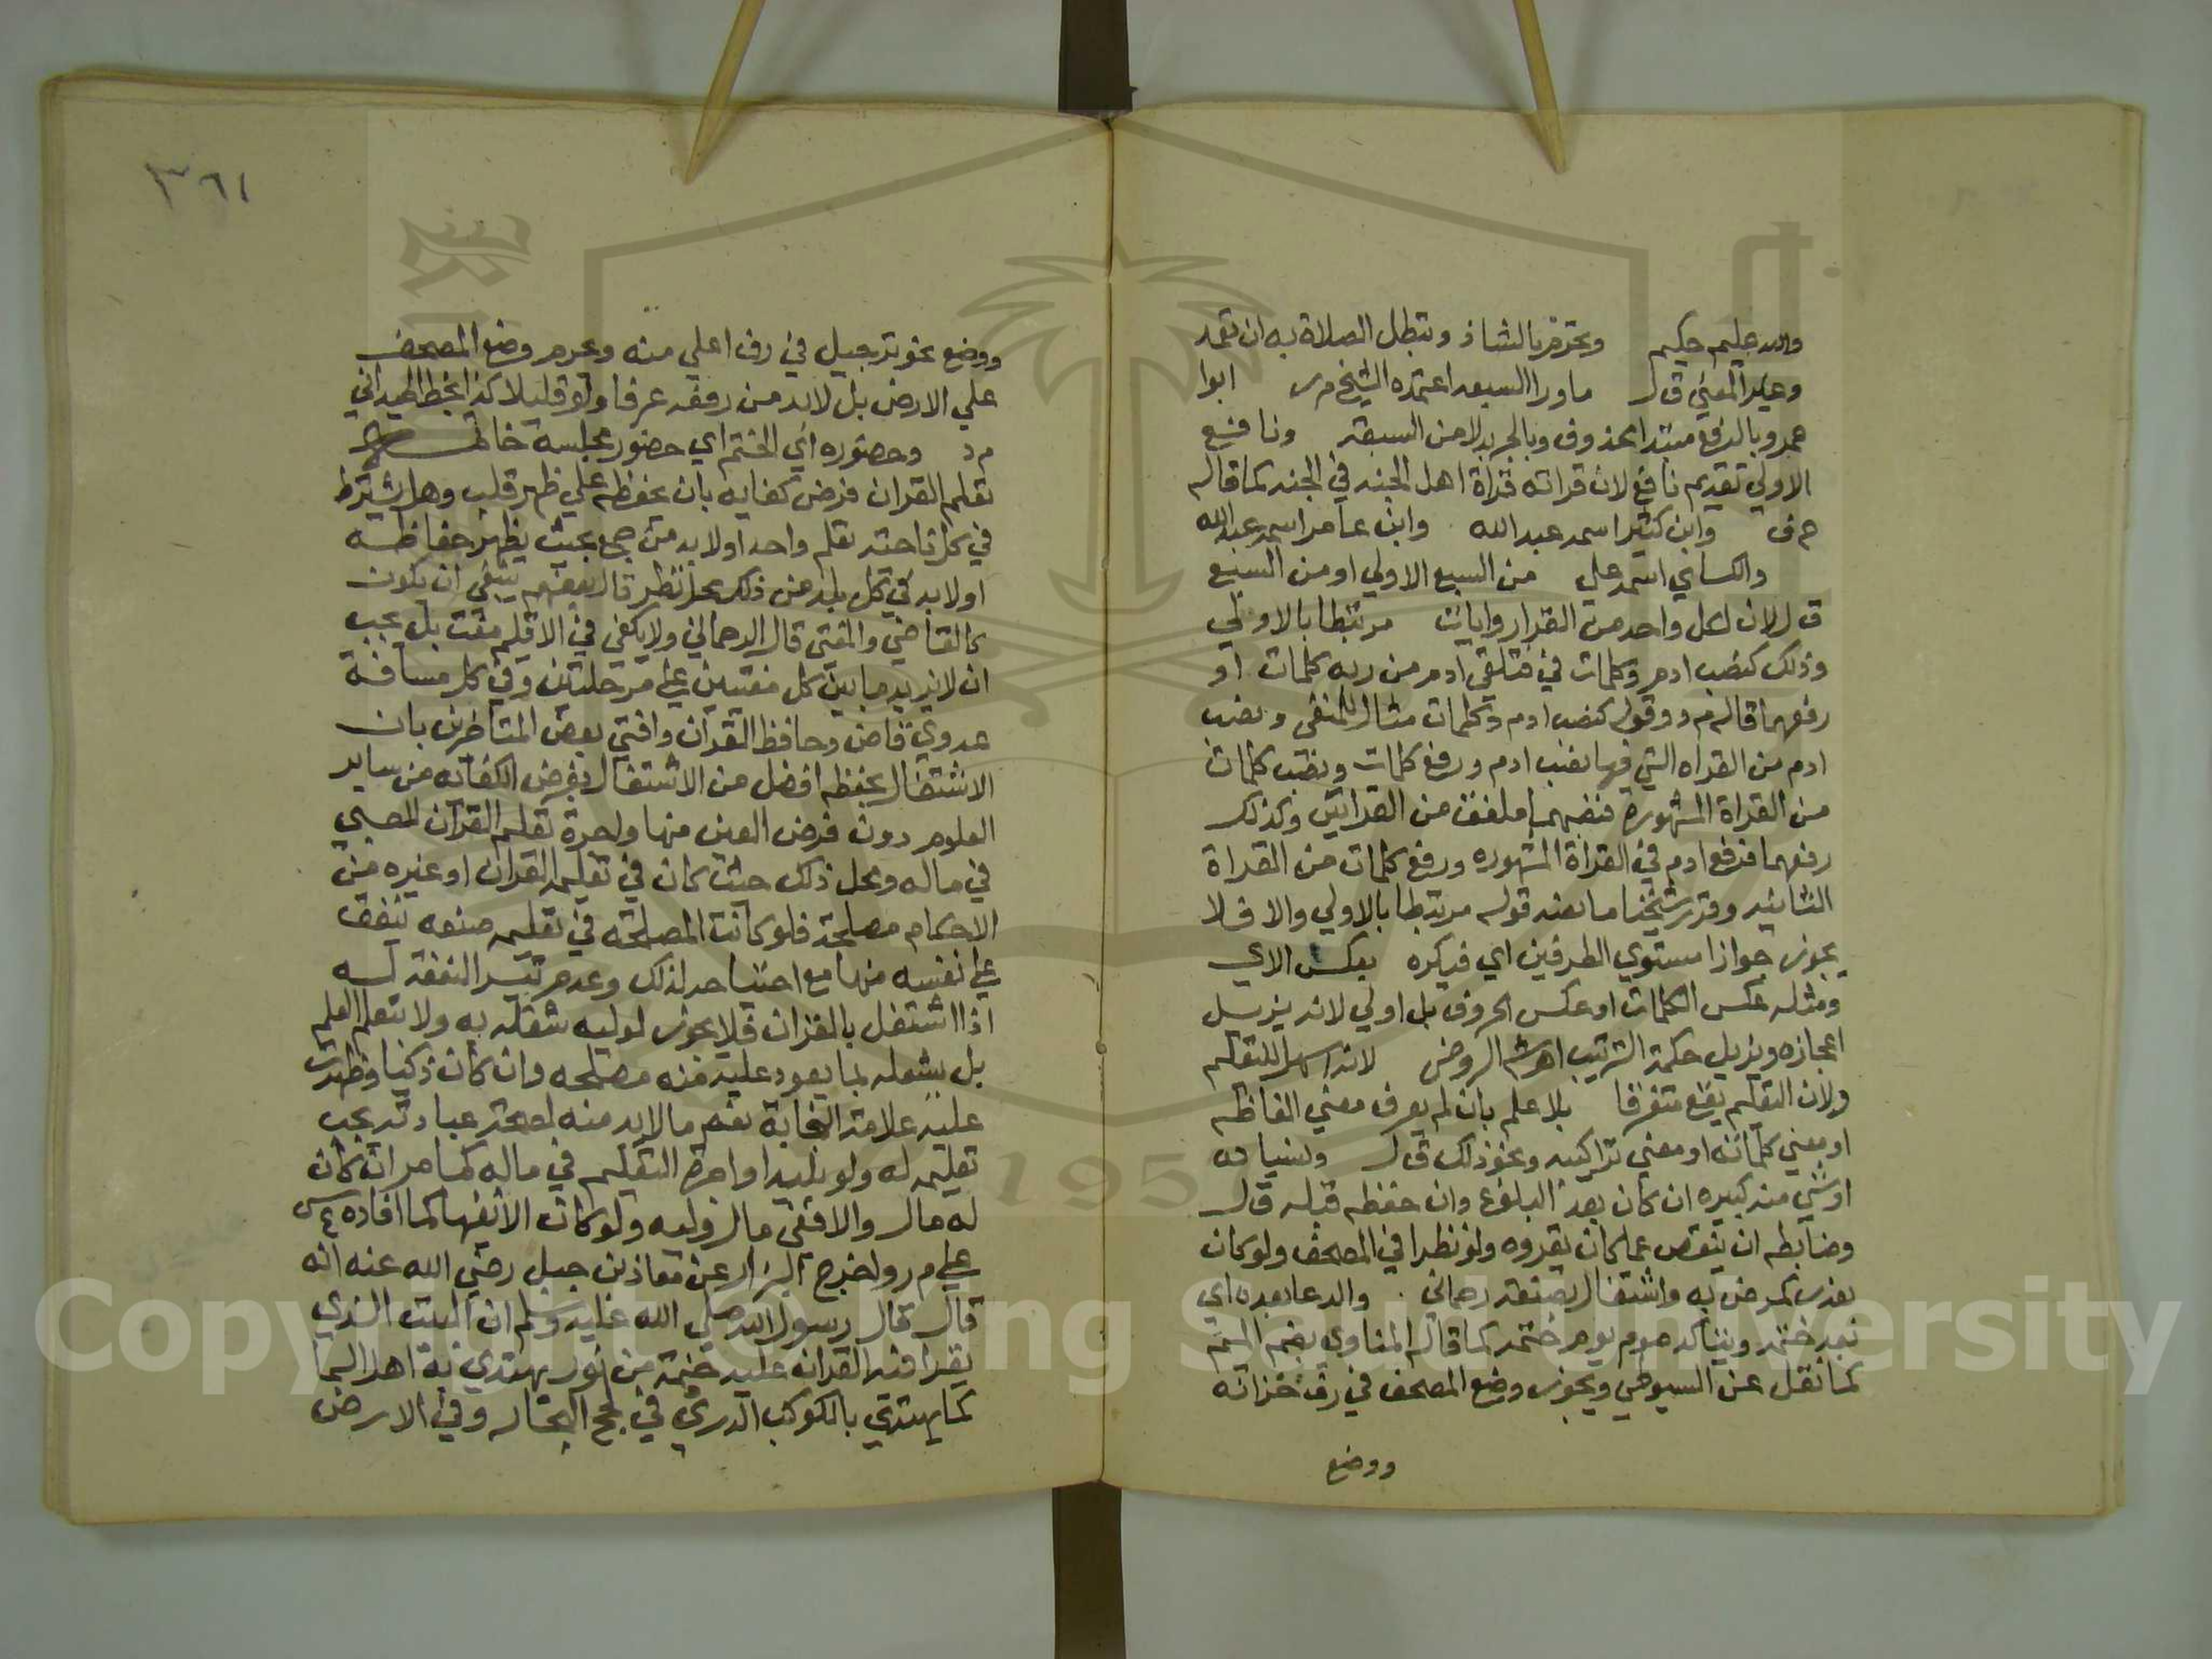 والله عليم حكيم ويحرم بالشاذ وتبطل الصلاة به ان تعمد
وغير المعني ق ل ما ورا السبعه اعتمده الشيخ م ر ابوا
عمرو بالرفع مبتدا محذوف وبالجر بدلا من السبعة ونافع
الاولي تقديم نافع لان قراته قراة اهل الجنه في الجنه كما قاله
ح ف وابن كثير اسمه عبد الله وابن عامر اسمه عبد الله
والكساي اسمه علي من السبع الاولي او من السبع
ق ل لان لكل واحد من القرا روايات مرتبطا بالاولي
وذلك كنصب ادم وكلمات في فتلقي ادم من ربه كلمات او
رفعهما قاله م د وقوله كنصب ادم وكلمات مثال للمنفي ونصب
ادم من القراه التي فيها نصب ادم ورفع كلمات ونصب كلمات
من القراة المشهورة فنصبهما ملفق من القراتين وكذلك
رفعهما فرفع ادم في القراة المشهوره ورفع كلمات من القراة
الثانيه وقرر شيخنا ما نصه قوله مرتبطا بالاولي والا فلا
يجوز جوازا مستوي الطرفين اي فيكره بعكس الاي
ومثله عكس الكلمات او عكس الحروف بل اولي لانه يزيل
اعجازه ويزيل حكمة الترتيب اهـ شرح الروض لانه اسهل للتعلم
ولان التعليم يقع متفرقا بلا علم بان لم يعرف معني الفاظه
او معني كلماته او معني تراكيبه ونحو ذلك ق ل ونسيانه
او شي منه كبيره ان كان بعد البلوغ وان حفظه قبله ق ل
وضابطه ان ينقص عما كان يقروه ولو نظرا في المصحف ولو كان
بعذر كمرض به واشتغال بصنعة رحماني والدعا بعده اي
بعد ختمه ويتاكد صوم يوم ختمه كما قاله المناوي بضم الميم
كما نقل عن السيوطي ويجوز وضع المصحف في رف خزانة
ووضع
٣٦١
ووضع نحو ترجيل في رف اعلي منه ويحرم وضع المصحف
علي الارض بل لابد من رفعه عرفا ولو قليلا كذا بخط الميداني
م د وحضوره اي الختم اي حضور مجلسه
تعلم القران فرض كفايه بان يحفظه علي ظهر قلب وهل يشترط
في كل ناحيه تعلم واحد او لابد من جمع بحيث يظهر حفاظه
او لابد في كل بلد من ذلك محل نظر قال بعضهم ينبغي ان يكون
كالقاضي والمفتي قال الرحماني ولا يكفي في الاقليم مفت بل يجب
ان لا يزيد ما بين كل مفتيين علي مرحلتين وفي كل مسافة
عدوي قاض وحافظ القران وافتي بعض المتاخرين بان
الاشتغال بحفظه افضل من الاشتغال بفرض الكفايه من ساير
العلوم دون فرض العين منها واجرة تعليم القران للصبي
في ماله ومحل ذلك حيث كان في تعليمه القران او غيره من
الاحكام مصلحة فلو كانت المصلحة في تعليمه صنعه ينفق
علي نفسه منها مع احتياجه لذلك وعدم تيسر النفقه له
اذا اشتغل بالقران فلا يجوز لوليه شغله به ولا بتعلم العلم
بل يشغله بما يعود عليه منه مصلحه وان كان ذكيا وظهرت
عليه علامة النجابة نعم ما لابد منه لصحة عبادته يجب
تعليمه له ولو بليدا واجرة التعليم في ماله كما مر ان كان
له مال والا ففي مال وليه ولو كانت الانفها كما افاده ع ش
علي م ر واخرج البزار عن معاذ بن جبل رضي الله عنه انه
قال قال رسول الله صلي الله عليه وسلم ان البيت الذي
يقرا فيه القران عليه خيمة من نور يهتدي به اهل السما
كما يهتدي بالكوكب الدري في لجج البحار وفي الارض
Copyright © King Saud University
1957